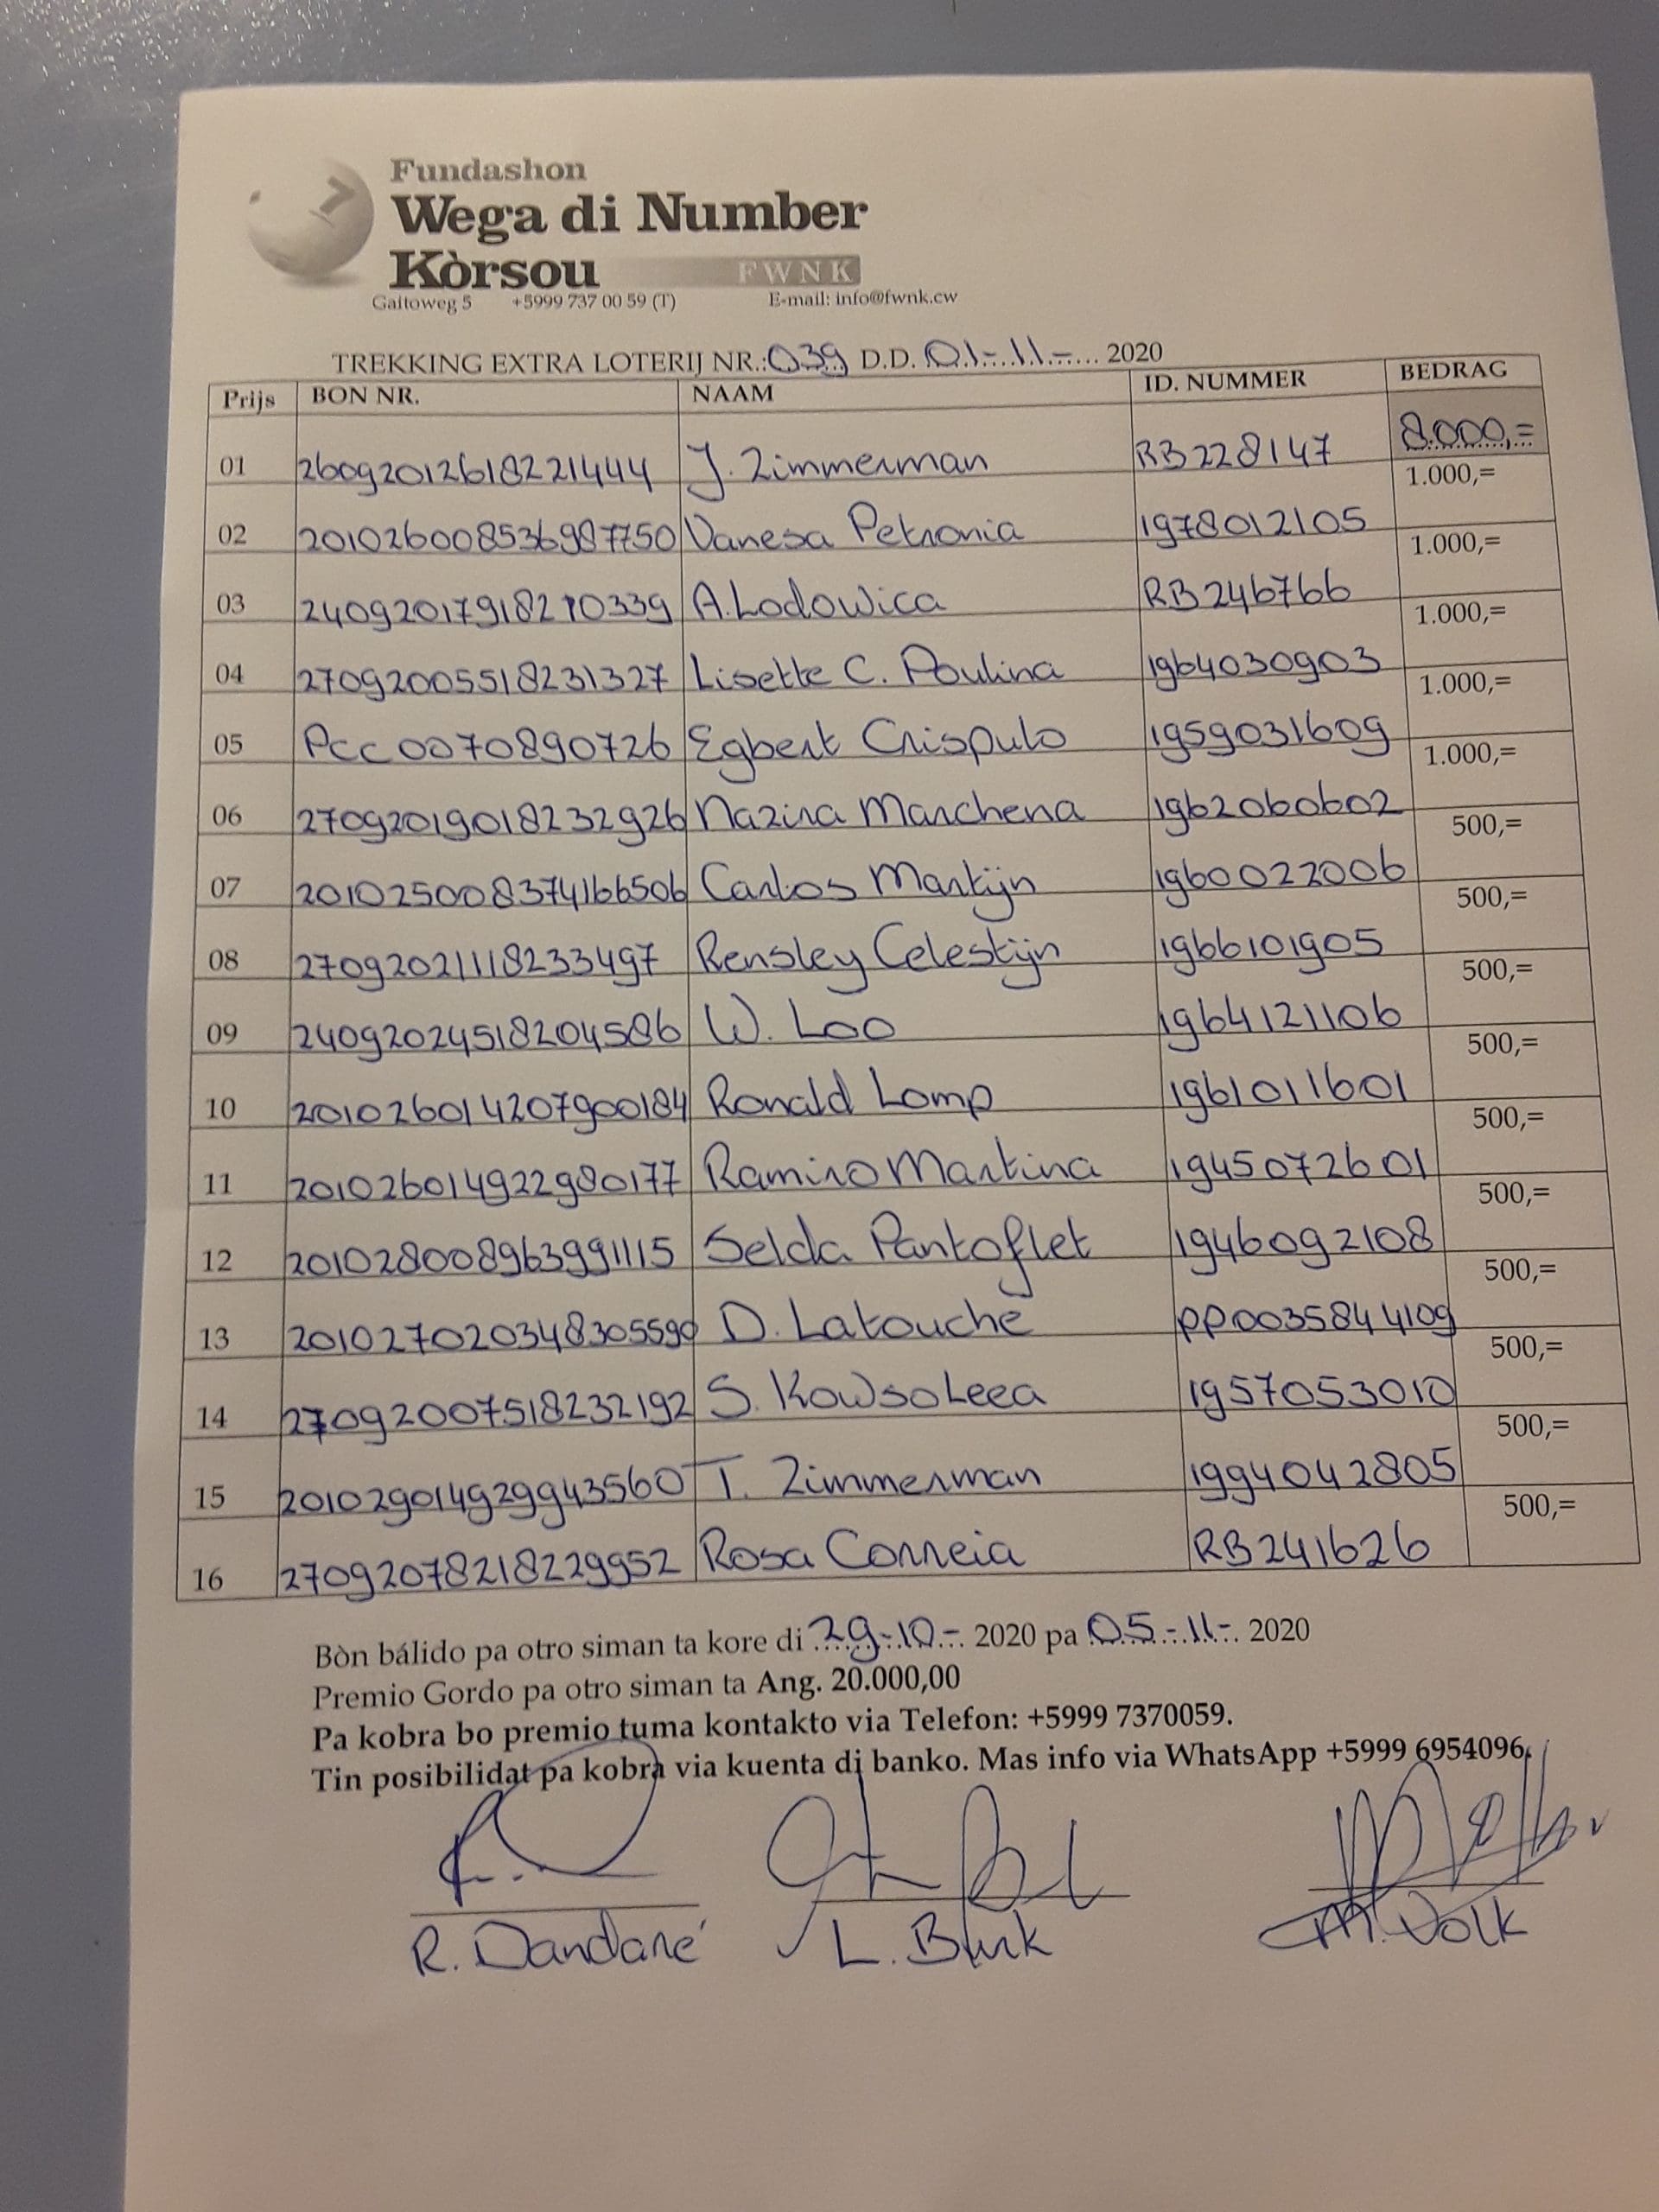 Fundashon
Wega di Number
Kòrsou FWNK
Gaitoweg 5 +5999 737 00 59 (T) E-mail: info@fwnk.cw
TREKKING EXTRA LOTERIJ NR.: 039 D.D. 01-11-2020
Prijs BON NR. NAAM ID. NUMMER BEDRAG
01 26092012618221444 J. Zimmerman RB228147 8.000,=
02 201026008536987750 Vanesa Petronia 1978012105 1.000,=
03 24092017918210339 A. Lodowica RB246766 1.000,=
04 27092005518231327 Lisette C. Paulina 1964030903 1.000,=
05 PCC0070890726 Egbert Crispulo 1959031609 1.000,=
06 27092019018232926 Nazira Marchena 1962060602 1.000,=
07 201025008374166506 Carlos Martijn 1960022006 500,=
08 27092021118233497 Rensley Celestijn 1966101905 500,=
09 24092024518204586 W. Loo 1964121106 500,=
10 201026014207900184 Ronald Lomp 1961011601 500,=
11 201026014922980177 Ramiro Martina 1945072601 500,=
12 201028008963991115 Selda Pantoflet 1946092108 500,=
13 201027020348305590 D. Latouche PP0035844109 500,=
14 27092007518232192 S. Kowsoleea 1957053010 500,=
15 201029014929943560 T. Zimmerman 1994042805 500,=
16 27092078218229952 Rosa Correia RB241626 500,=
Bòn bálido pa otro siman ta kore di 29-10-2020 pa 05-11-2020
Premio Gordo pa otro siman ta Ang. 20.000,00
Pa kobra bo premio tuma kontakto via Telefon: +5999 7370059.
Tin posibilidat pa kobra via kuenta di banko. Mas info via WhatsApp +5999 6954096.
R. Dandaré L. Burk M. Volk